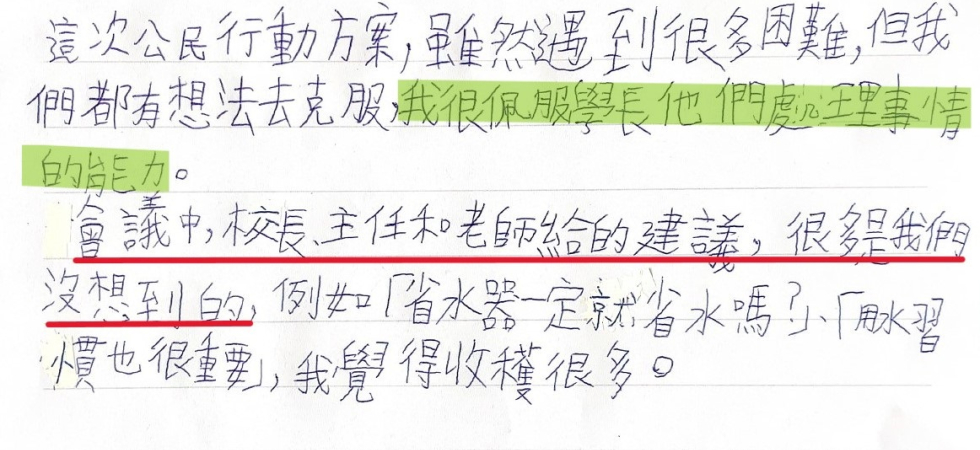 這次公民行動方案,雖然遇到很多困難,但我
們都有想法去克服,我很佩服學長他們處理事情
的能力。
會議中,校長、主任和老師給的建議,很多是我們
沒想到的,例如「省水器一定就省水嗎?」、「用水習
慣也很重要」,我覺得收穫很多。